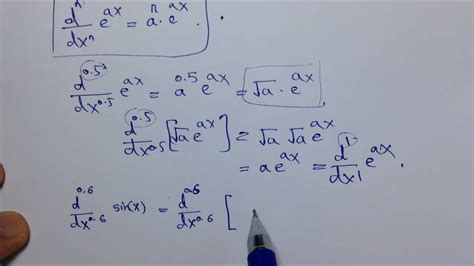 dⁿ/dxⁿ e^{ax} = aⁿ · e^{ax} .
d^{0.5}/dx^{0.5} e^{ax} = a^{0.5} e^{ax} = √a · e^{ax} .
d^{0.5}/dx^{0.5} [√a e^{ax}] = √a √a e^{ax}
= a e^{ax} = d^1/dx1 e^{ax} .
d^{0.6}/dx^{0.6} sin(x) = d^{0.6}/dx^{0.6} [